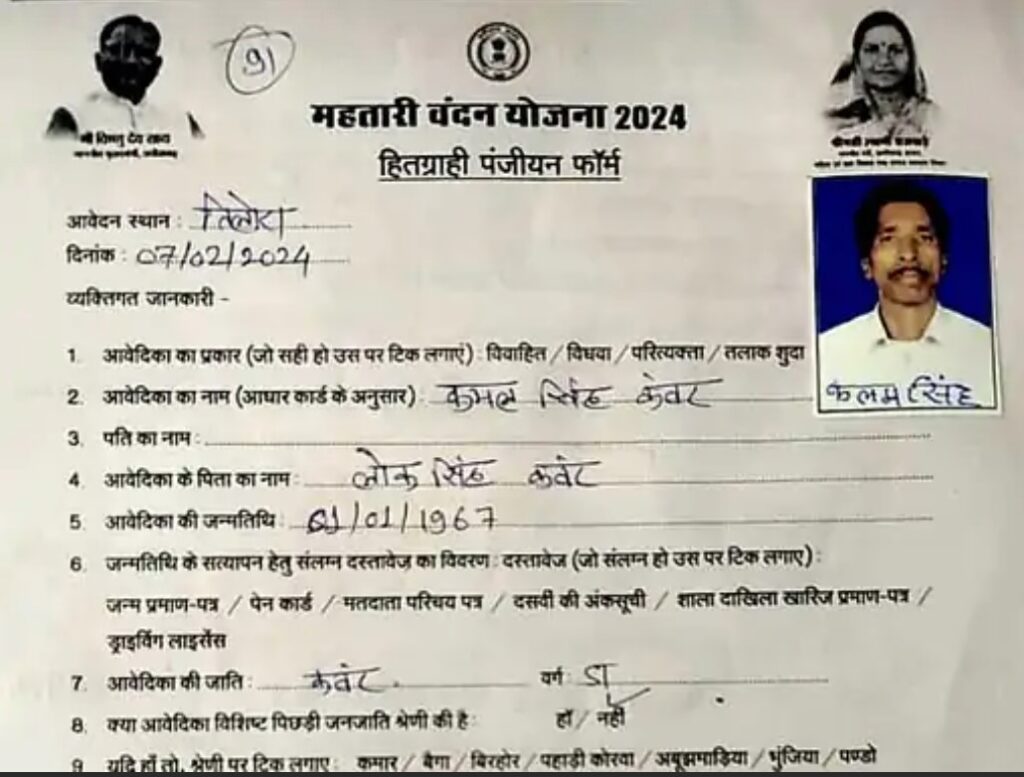 91
श्री विष्णु देव साय
महतारी वंदन योजना 2024
हितग्राही पंजीयन फॉर्म
आवेदन स्थान :
दिनांक : 07/02/2024
व्यक्तिगत जानकारी -
1. आवेदिका का प्रकार (जो सही हो उस पर टिक लगाएं) : विवाहित / विधवा / परित्यक्ता / तलाक शुदा
2. आवेदिका का नाम (आधार कार्ड के अनुसार) : कमल सिंह कंवर
कलम सिंह
3. पति का नाम :
4. आवेदिका के पिता का नाम : लोक सिंह कवंर
5. आवेदिका की जन्मतिथि : 01/01/1967
6. जन्मतिथि के सत्यापन हेतु संलग्न दस्तावेज का विवरण : दस्तावेज (जो संलग्न हो उस पर टिक लगाए) :
जन्म प्रमाण-पत्र / पेन कार्ड / मतदाता परिचय पत्र / दसवीं की अंकसूची / शाला दाखिला खारिज प्रमाण-पत्र /
ड्राइविंग लाइसेंस
7. आवेदिका की जाति : कवंर. वर्ग :
8. क्या आवेदिका विशिष्ट पिछड़ी जनजाति श्रेणी की है : हाँ / नहीं
9 यदि हाँ तो, श्रेणी पर टिक लगाए : कमार / बैगा / बिरहोर / पहाड़ी कोरवा / अबूझमाड़िया / भुंजिया / पण्डो